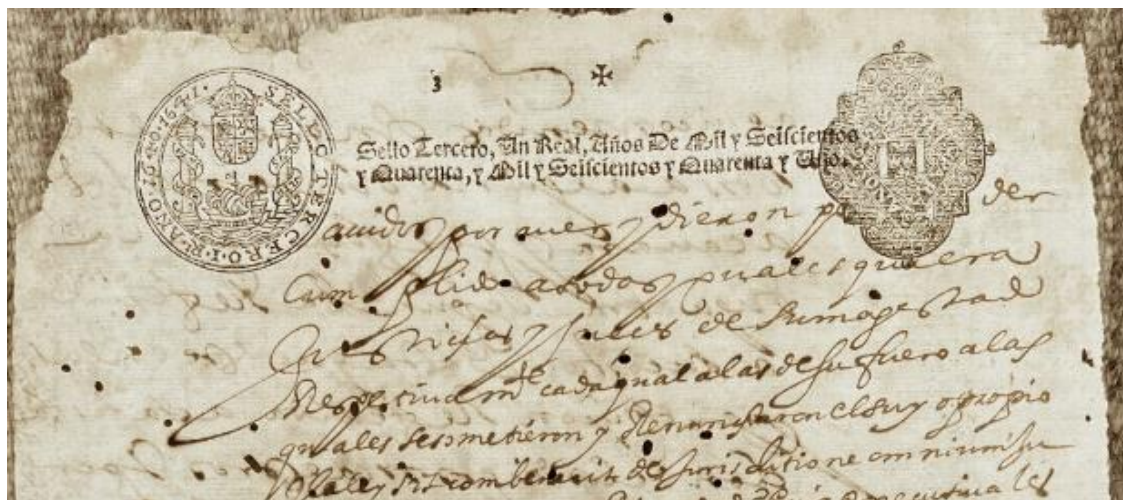 3 ✠
SELLO TERCERO
AÑO 1640 1641
Sello Tercero, Un Real, Años De Mil y Seiscientos
y Quarenta, y Mil y Seiscientos y Quarenta y Uno.
auidos por y dieron po der
Cumplido a todas qualesquiera
Justicias y Jueces de su magestad
Respectiuamte cada qual a las de su fuero a las
quales se sometieron y Renunsiaron el suyo propio
y la ley sit combenerit de Jurisditione omnium Ju